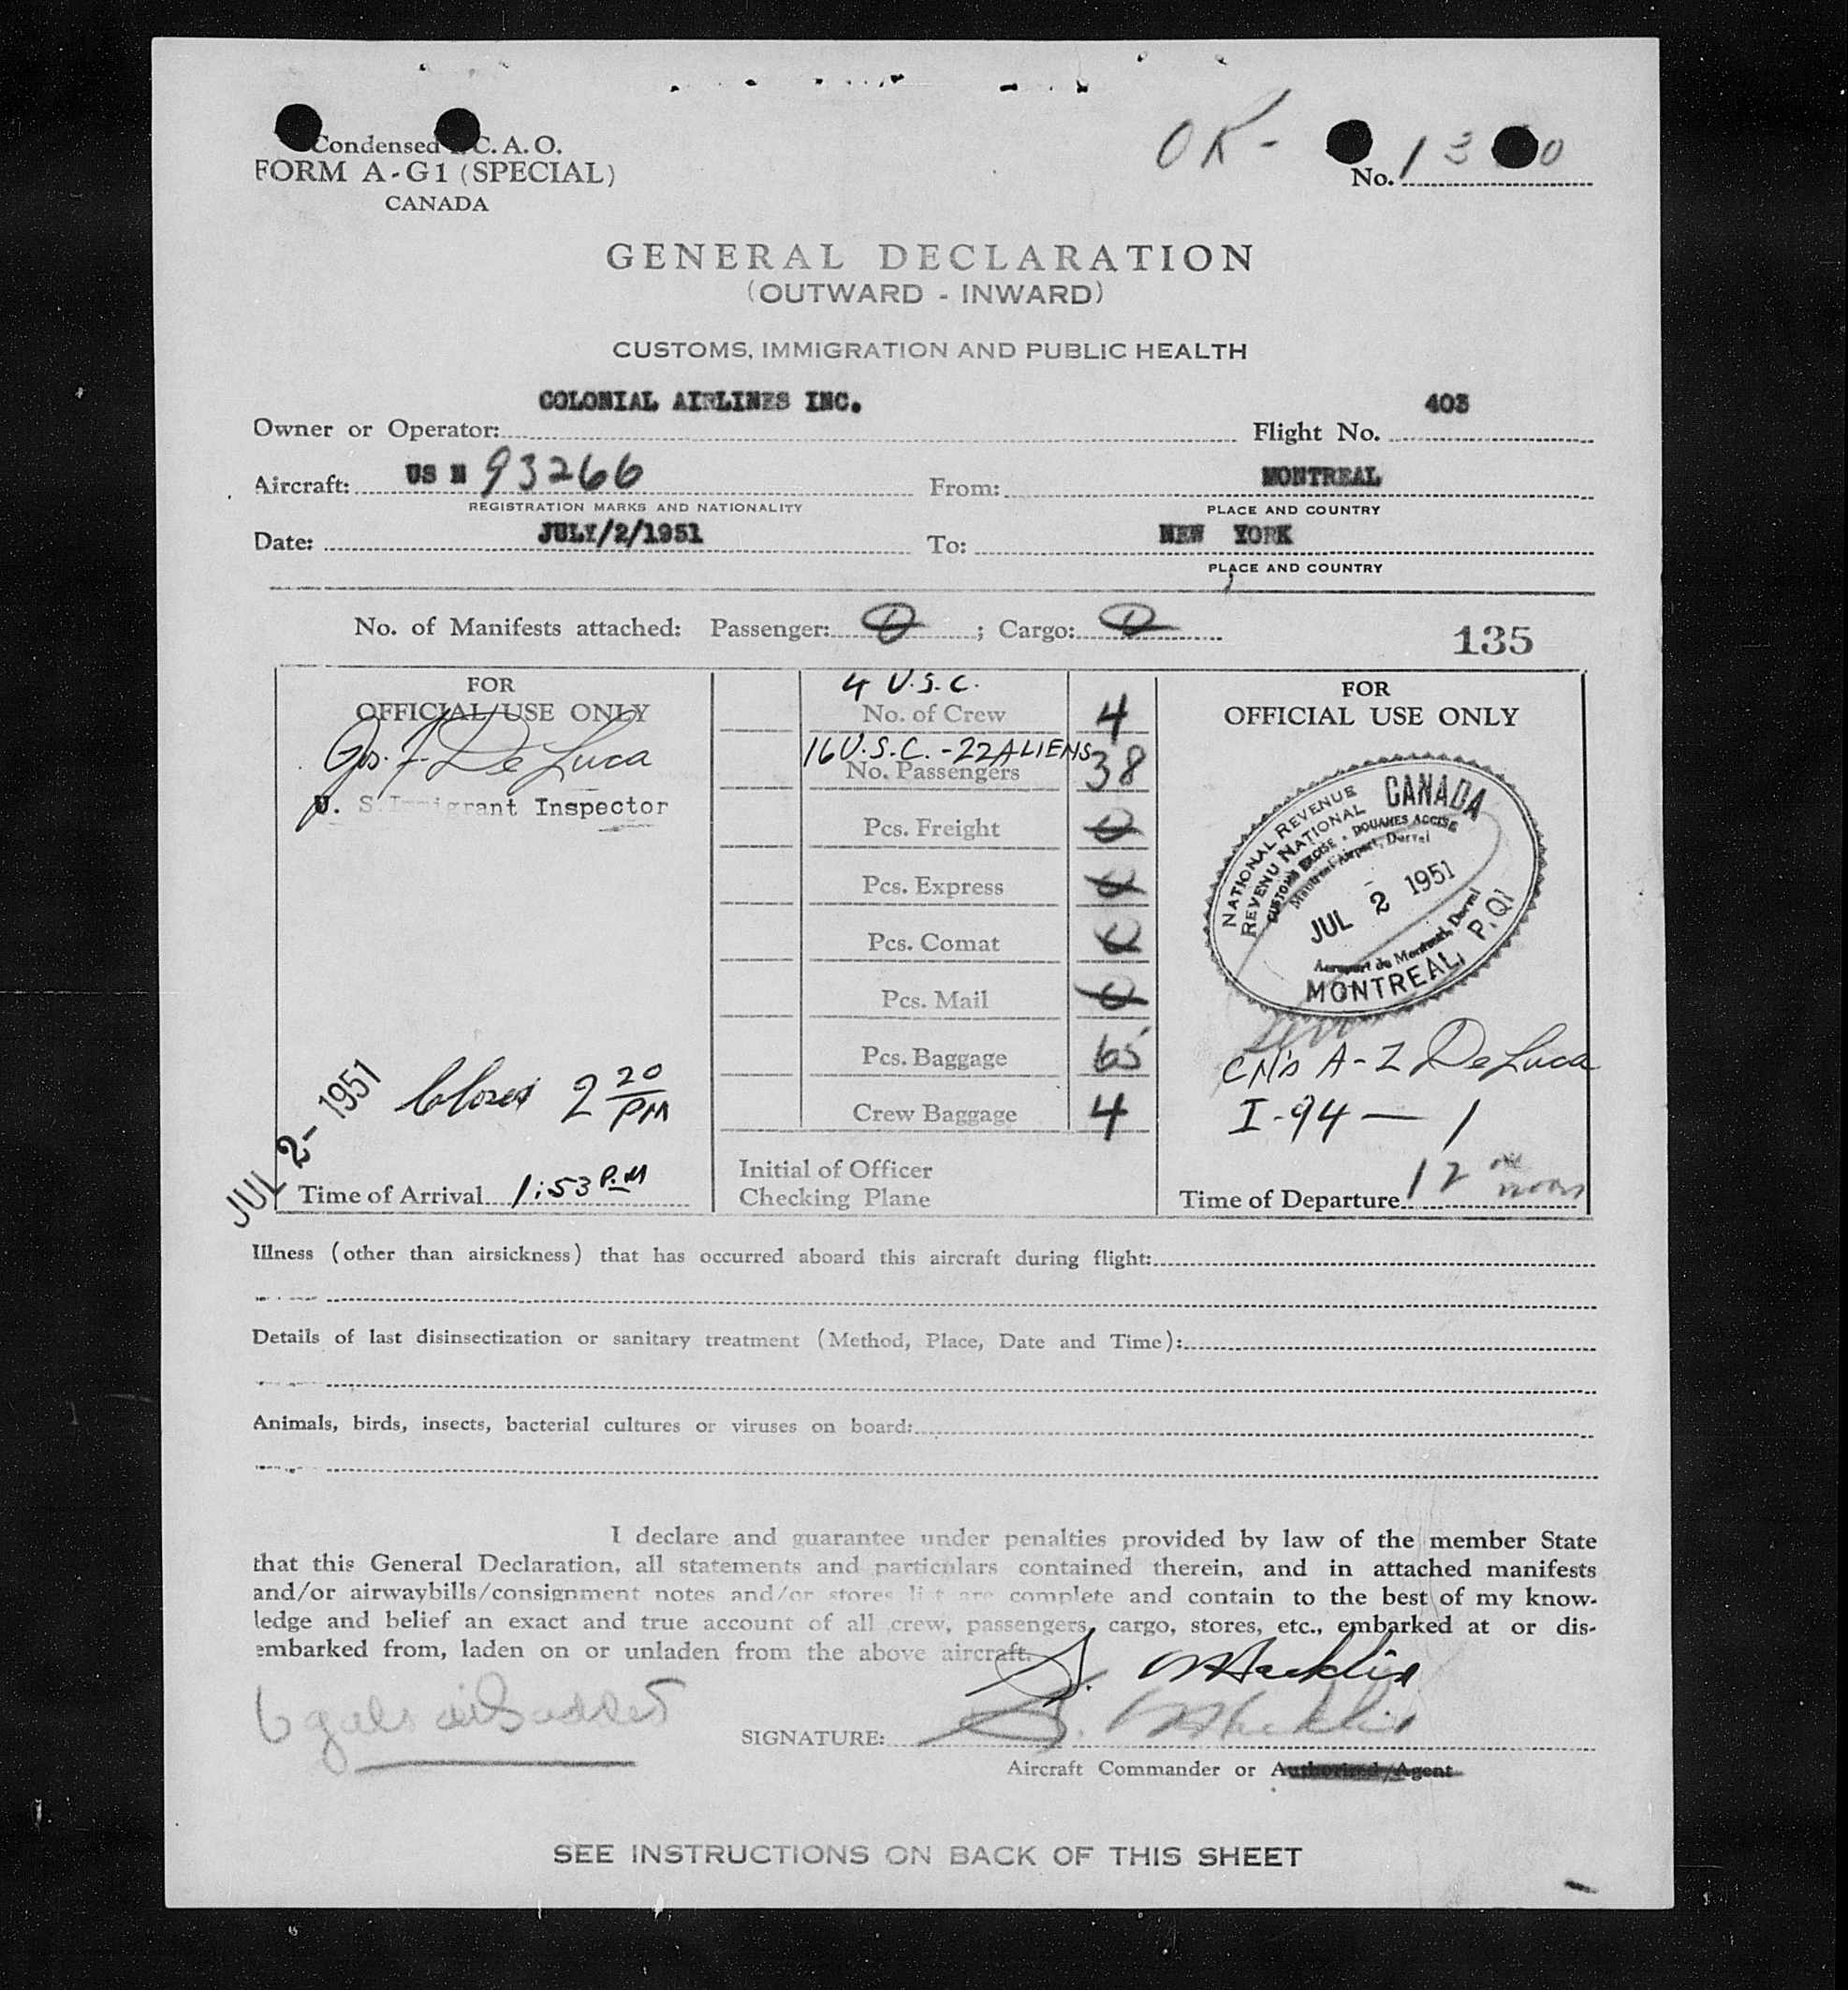 Condensed I.C.A.O.
FORM A-G1 (SPECIAL)
CANADA
OK-
No. 13 0
GENERAL DECLARATION
(OUTWARD - INWARD)
CUSTOMS, IMMIGRATION AND PUBLIC HEALTH
COLONIAL AIRLINES INC. 403
Owner or Operator: Flight No.
Aircraft: US N 93266 From: MONTREAL
REGISTRATION MARKS AND NATIONALITY PLACE AND COUNTRY
Date: JULY/2/1951 To: NEW YORK
PLACE AND COUNTRY
No. of Manifests attached: Passenger: 0 ; Cargo: 0
135
FOR
OFFICIAL USE ONLY
Jos. F. De Luca
U. S Immigrant Inspector
JUL 2 - 1951
Closed 2 20 PM
Time of Arrival 1:53 P.M
4 U.S.C.
No. of Crew 4
16 U.S.C. - 22 ALIENS
No. Passengers 38
Pcs. Freight 0
Pcs. Express 0
Pcs. Comat 0
Pcs. Mail 0
Pcs. Baggage 65
Crew Baggage 4
Initial of Officer
Checking Plane
FOR
OFFICIAL USE ONLY
CANADA
NATIONAL REVENUE
REVENU NATIONAL
CUSTOMS EXCISE - DOUANES ACCISE
Montreal Airport, Dorval
JUL 2 1951
Aeroport de Montreal, Dorval
MONTREAL, P.Q.
A-Z De Luca
I-94 — 1
Time of Departure 12 noon
Illness (other than airsickness) that has occurred aboard this aircraft during flight:
Details of last disinsectization or sanitary treatment (Method, Place, Date and Time):
Animals, birds, insects, bacterial cultures or viruses on board:
I declare and guarantee under penalties provided by law of the member State
that this General Declaration, all statements and particulars contained therein, and in attached manifests
and/or airwaybills/consignment notes and/or stores list are complete and contain to the best of my know-
ledge and belief an exact and true account of all crew, passengers, cargo, stores, etc., embarked at or dis-
embarked from, laden on or unladen from the above aircraft.
6 gals
SIGNATURE:
Aircraft Commander or Authorized/Agent
SEE INSTRUCTIONS ON BACK OF THIS SHEET